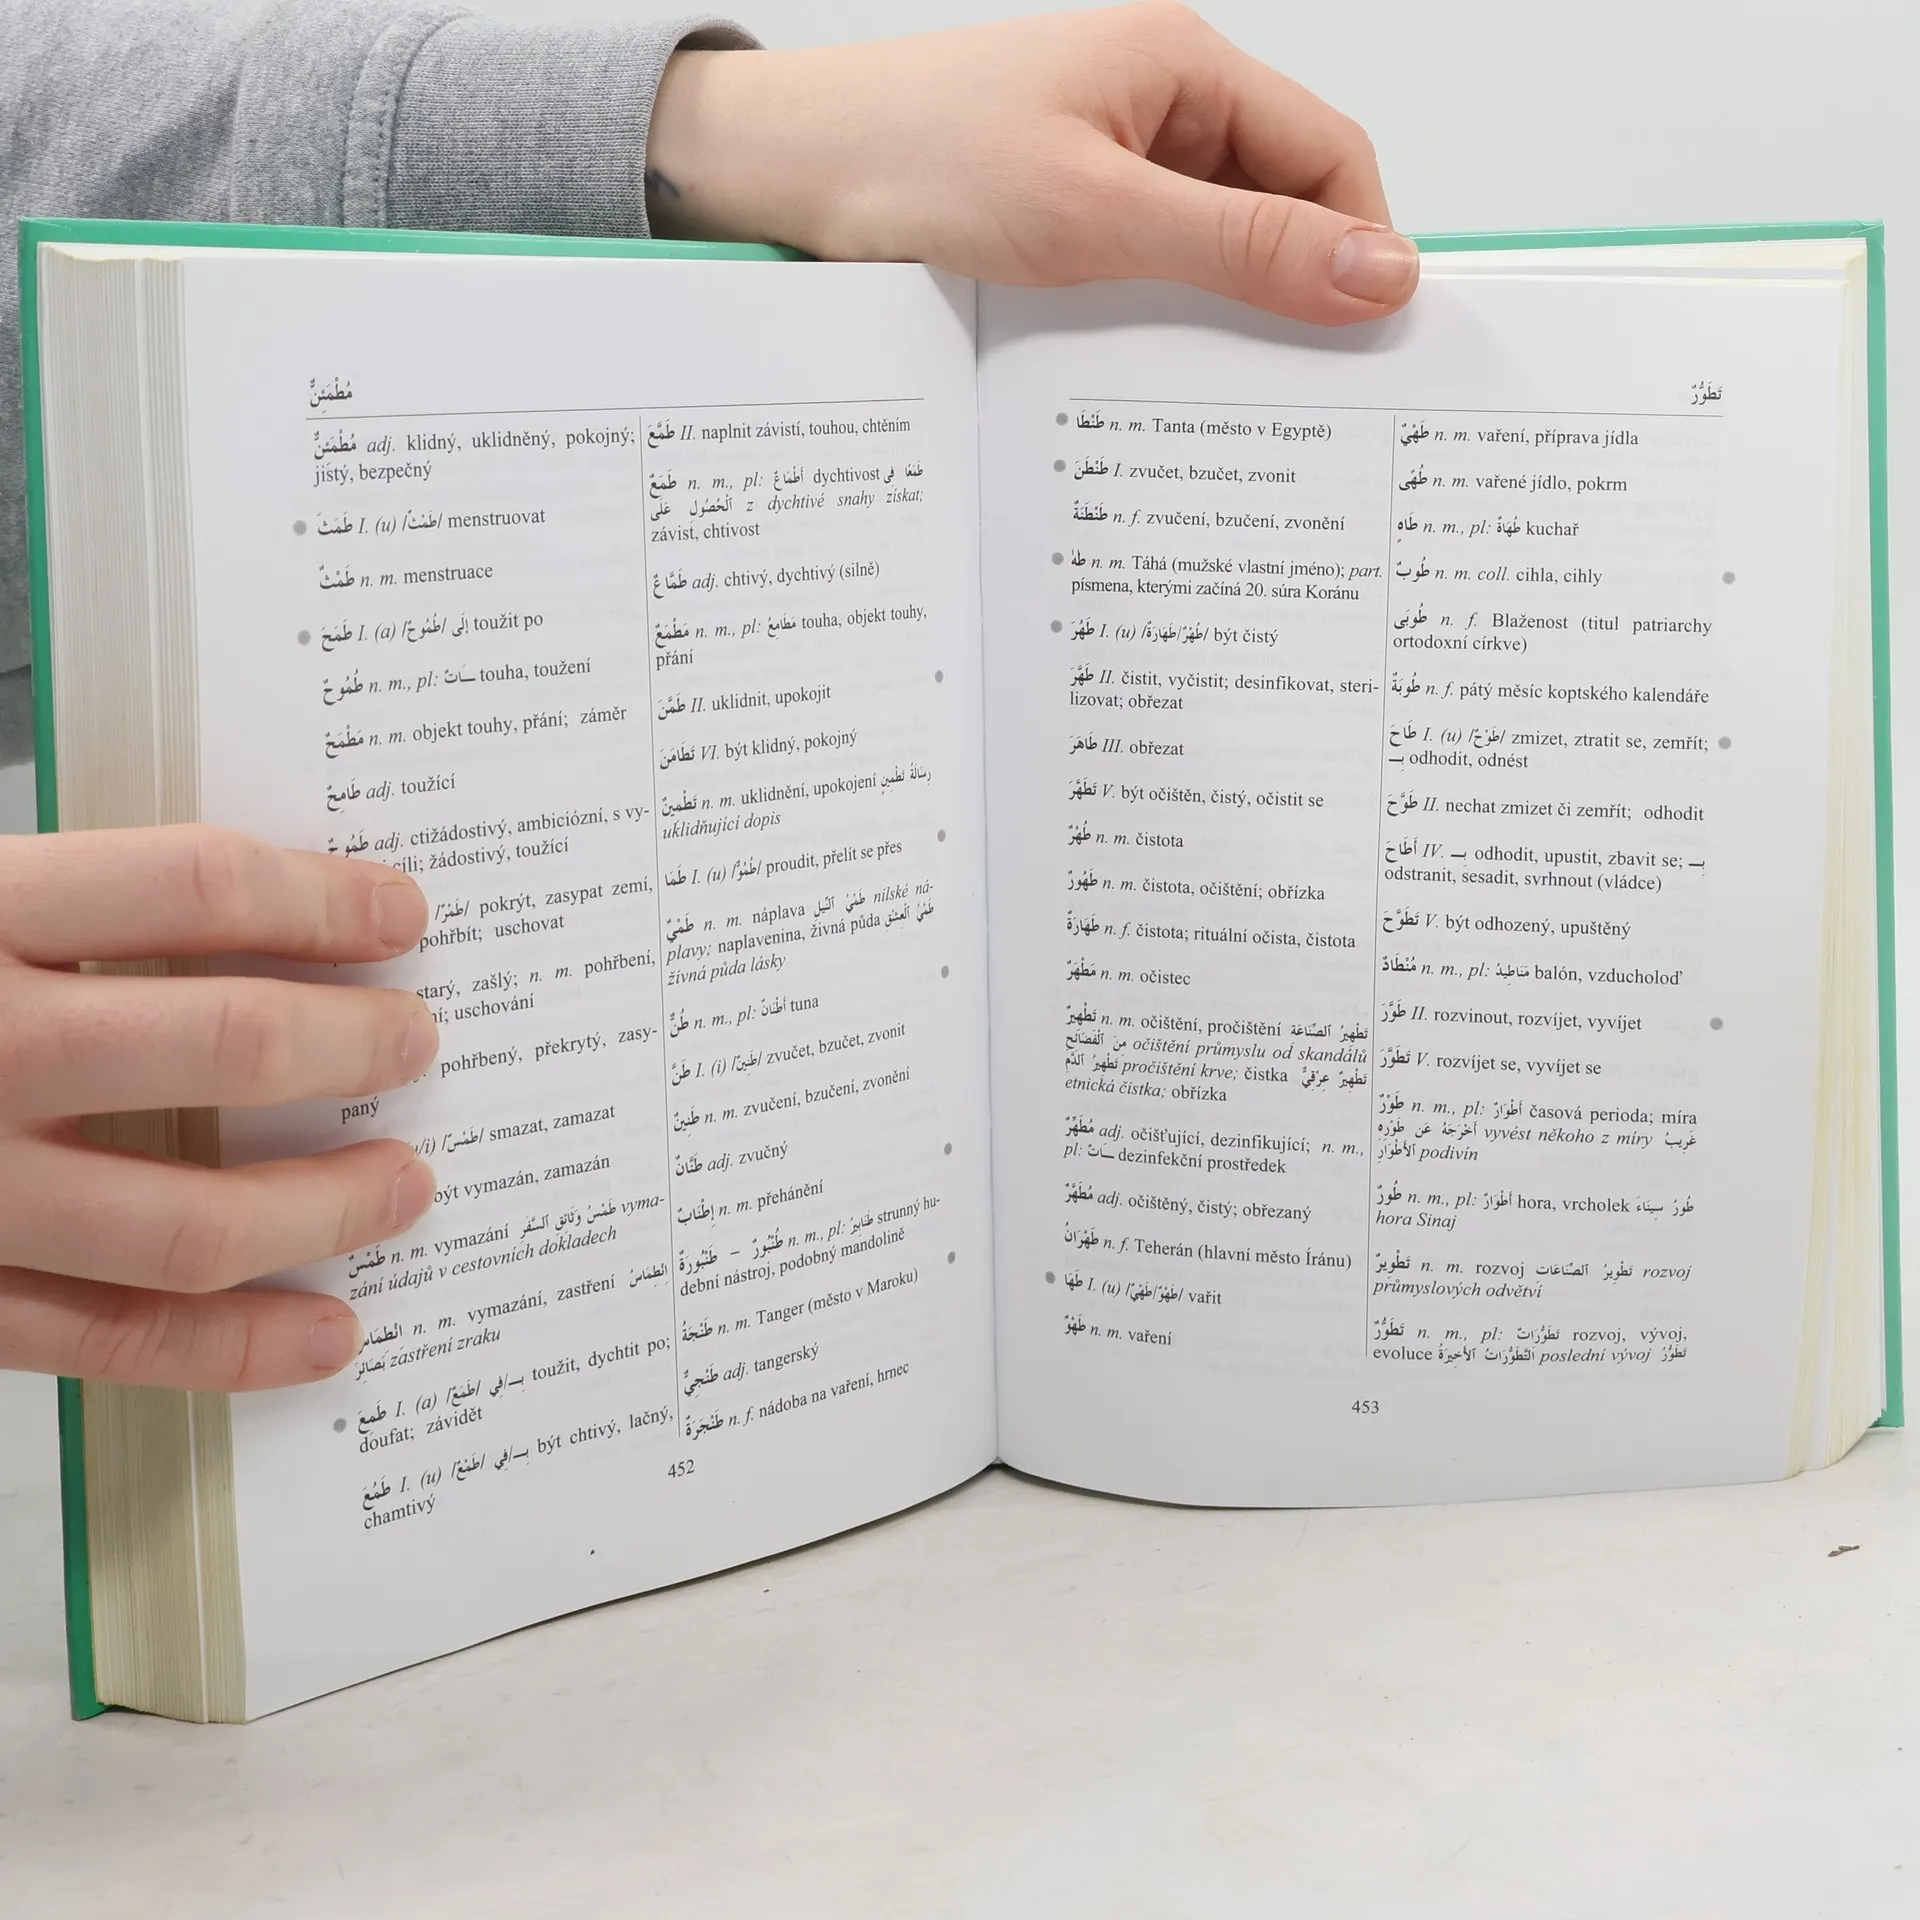 مُطْمَئِنٌّ
مُطْمَئِنٌّ adj. klidný, uklidněný, pokojný;
jistý, bezpečný
طَمَثَ I. (u) /طَمْثٌ/ menstruovat
طَمْثٌ n. m. menstruace
طَمَحَ I. (a) /طُمُوحٌ/ إِلَى toužit po
طُمُوحٌ n. m., pl: ـَاتٌ touha, toužení
مَطْمَحٌ n. m. objekt touhy, přání; záměr
طَامِحٌ adj. toužící
طَمُوحٌ adj. ctižádostivý, ambiciózní, s vy-
cíli; žádostivý, toužící
/طَمْرٌ/ pokrýt, zasypat zemí,
pohřbít; uschovat
starý, zašlý; n. m. pohřbení,
ní; uschování
pohřbený, překrytý, zasy-
paný
/i) /طَمْسٌ/ smazat, zamazat
být vymazán, zamazán
طَمْسٌ n. m. vymazání طَمْسُ وَثَائِقِ ٱلسَّفَرِ vyma-
zání údajů v cestovních dokladech
اِنْطِمَاسٌ n. m. vymazání, zastření اِنْطِمَاسُ
بَصَائِرَ zastření zraku
طَمِعَ I. (a) /طَمَعٌ/ فِي/بِـ toužit, dychtit po;
doufat; závidět
طَمُعَ I. (u) /طَمَعٌ/ فِي/بِـ být chtivý, lačný,
chamtivý
طَمَّعَ II. naplnit závistí, touhou, chtěním
طَمَعٌ n. m., pl: أَطْمَاعٌ dychtivost طَمَعًا فِي
ٱلْحُصُولِ عَلَى z dychtivé snahy získat;
závist, chtivost
طَمَّاعٌ adj. chtivý, dychtivý (silně)
مَطْمَعٌ n. m., pl: مَطَامِعُ touha, objekt touhy,
přání
طَمَّنَ II. uklidnit, upokojit
تَطَامَنَ VI. být klidný, pokojný
تَطْمِينٌ n. m. uklidnění, upokojení رِسَالَةُ تَطْمِينٍ
uklidňující dopis
طَمَا I. (u) /طُمُوٌّ/ proudit, přelít se přes
طَمْيٌ n. m. náplava طَمْيُ ٱلنِّيلِ nilské ná-
plavy; naplavenina, živná půda طَمْيُ ٱلْعِشْقِ
živná půda lásky
طُنٌّ n. m., pl: أَطْنَانٌ tuna
طَنَّ I. (i) /طَنِينٌ/ zvučet, bzučet, zvonit
طَنِينٌ n. m. zvučení, bzučení, zvonění
طَنَّانٌ adj. zvučný
إِطْنَابٌ n. m. přehánění
طُنْبُورٌ – طَنْبُورَةٌ n. m., pl: طَنَابِيرُ strunný hu-
dební nástroj, podobný mandolině
طَنْجَةُ n. m. Tanger (město v Maroku)
طَنْجِيٌّ adj. tangerský
طَنْجَرَةٌ n. f. nádoba na vaření, hrnec
452
تَطَوُّرٌ
طَنْطَا n. m. Tanta (město v Egyptě)
طَنْطَنَ I. zvučet, bzučet, zvonit
طَنْطَنَةٌ n. f. zvučení, bzučení, zvonění
طٰهٰ n. m. Táhá (mužské vlastní jméno); part.
písmena, kterými začíná 20. súra Koránu
طَهُرَ I. (u) /طُهْرٌ/طَهَارَةٌ/ být čistý
طَهَّرَ II. čistit, vyčistit; desinfikovat, steri-
lizovat; obřezat
طَاهَرَ III. obřezat
تَطَهَّرَ V. být očištěn, čistý, očistit se
طُهْرٌ n. m. čistota
طُهُورٌ n. m. čistota, očištění; obřízka
طَهَارَةٌ n. f. čistota; rituální očista, čistota
مَطْهَرٌ n. m. očistec
تَطْهِيرٌ n. m. očištění, pročištění تَطْهِيرُ ٱلصِّنَاعَةِ
مِنَ ٱلْفَضَائِحِ očištění průmyslu od skandálů
تَطْهِيرُ ٱلدَّمِ pročištění krve; čistka تَطْهِيرٌ عِرْقِيٌّ
etnická čistka; obřízka
مُطَهِّرٌ adj. očišťující, dezinfikující; n. m.,
pl: ـَاتٌ dezinfekční prostředek
مُطَهَّرٌ adj. očištěný, čistý; obřezaný
طَهْرَانُ n. f. Teherán (hlavní město Íránu)
طَهَا I. (u) /طَهْوٌ/طَهْيٌ/ vařit
طَهْوٌ n. m. vaření
طَهْيٌ n. m. vaření, příprava jídla
طُهًى n. m. vařené jídlo, pokrm
طَاهٍ n. m., pl: طُهَاةٌ kuchař
طُوبٌ n. m. coll. cihla, cihly
طُوبَى n. f. Blaženost (titul patriarchy
ortodoxní církve)
طُوبَةُ n. f. pátý měsíc koptského kalendáře
طَاحَ I. (u) /طَوْحٌ/ zmizet, ztratit se, zemřít;
بِـ odhodit, odnést
طَوَّحَ II. nechat zmizet či zemřít; odhodit
أَطَاحَ IV. بِـ odhodit, upustit, zbavit se; بِـ
odstranit, sesadit, svrhnout (vládce)
تَطَوَّحَ V. být odhozený, upuštěný
مُنْطَادٌ n. m., pl: مَنَاطِيدُ balón, vzducholoď
طَوَّرَ II. rozvinout, rozvíjet, vyvíjet
تَطَوَّرَ V. rozvíjet se, vyvíjet se
طَوْرٌ n. m., pl: أَطْوَارٌ časová perioda; míra
أَخْرَجَهُ عَنْ طَوْرِهِ vyvést někoho z míry غَرِيبُ
ٱلأَطْوَارِ podivín
طُورٌ n. m., pl: أَطْوَارٌ hora, vrcholek طُورُ سِينَاءَ
hora Sinaj
تَطْوِيرٌ n. m. rozvoj تَطْوِيرُ ٱلصِّنَاعَاتِ rozvoj
průmyslových odvětví
تَطَوُّرٌ n. m., pl: تَطَوُّرَاتٌ rozvoj, vývoj,
evoluce ٱلتَّطَوُّرَاتُ ٱلأَخِيرَةُ poslední vývoj تَطَوُّرُ
453